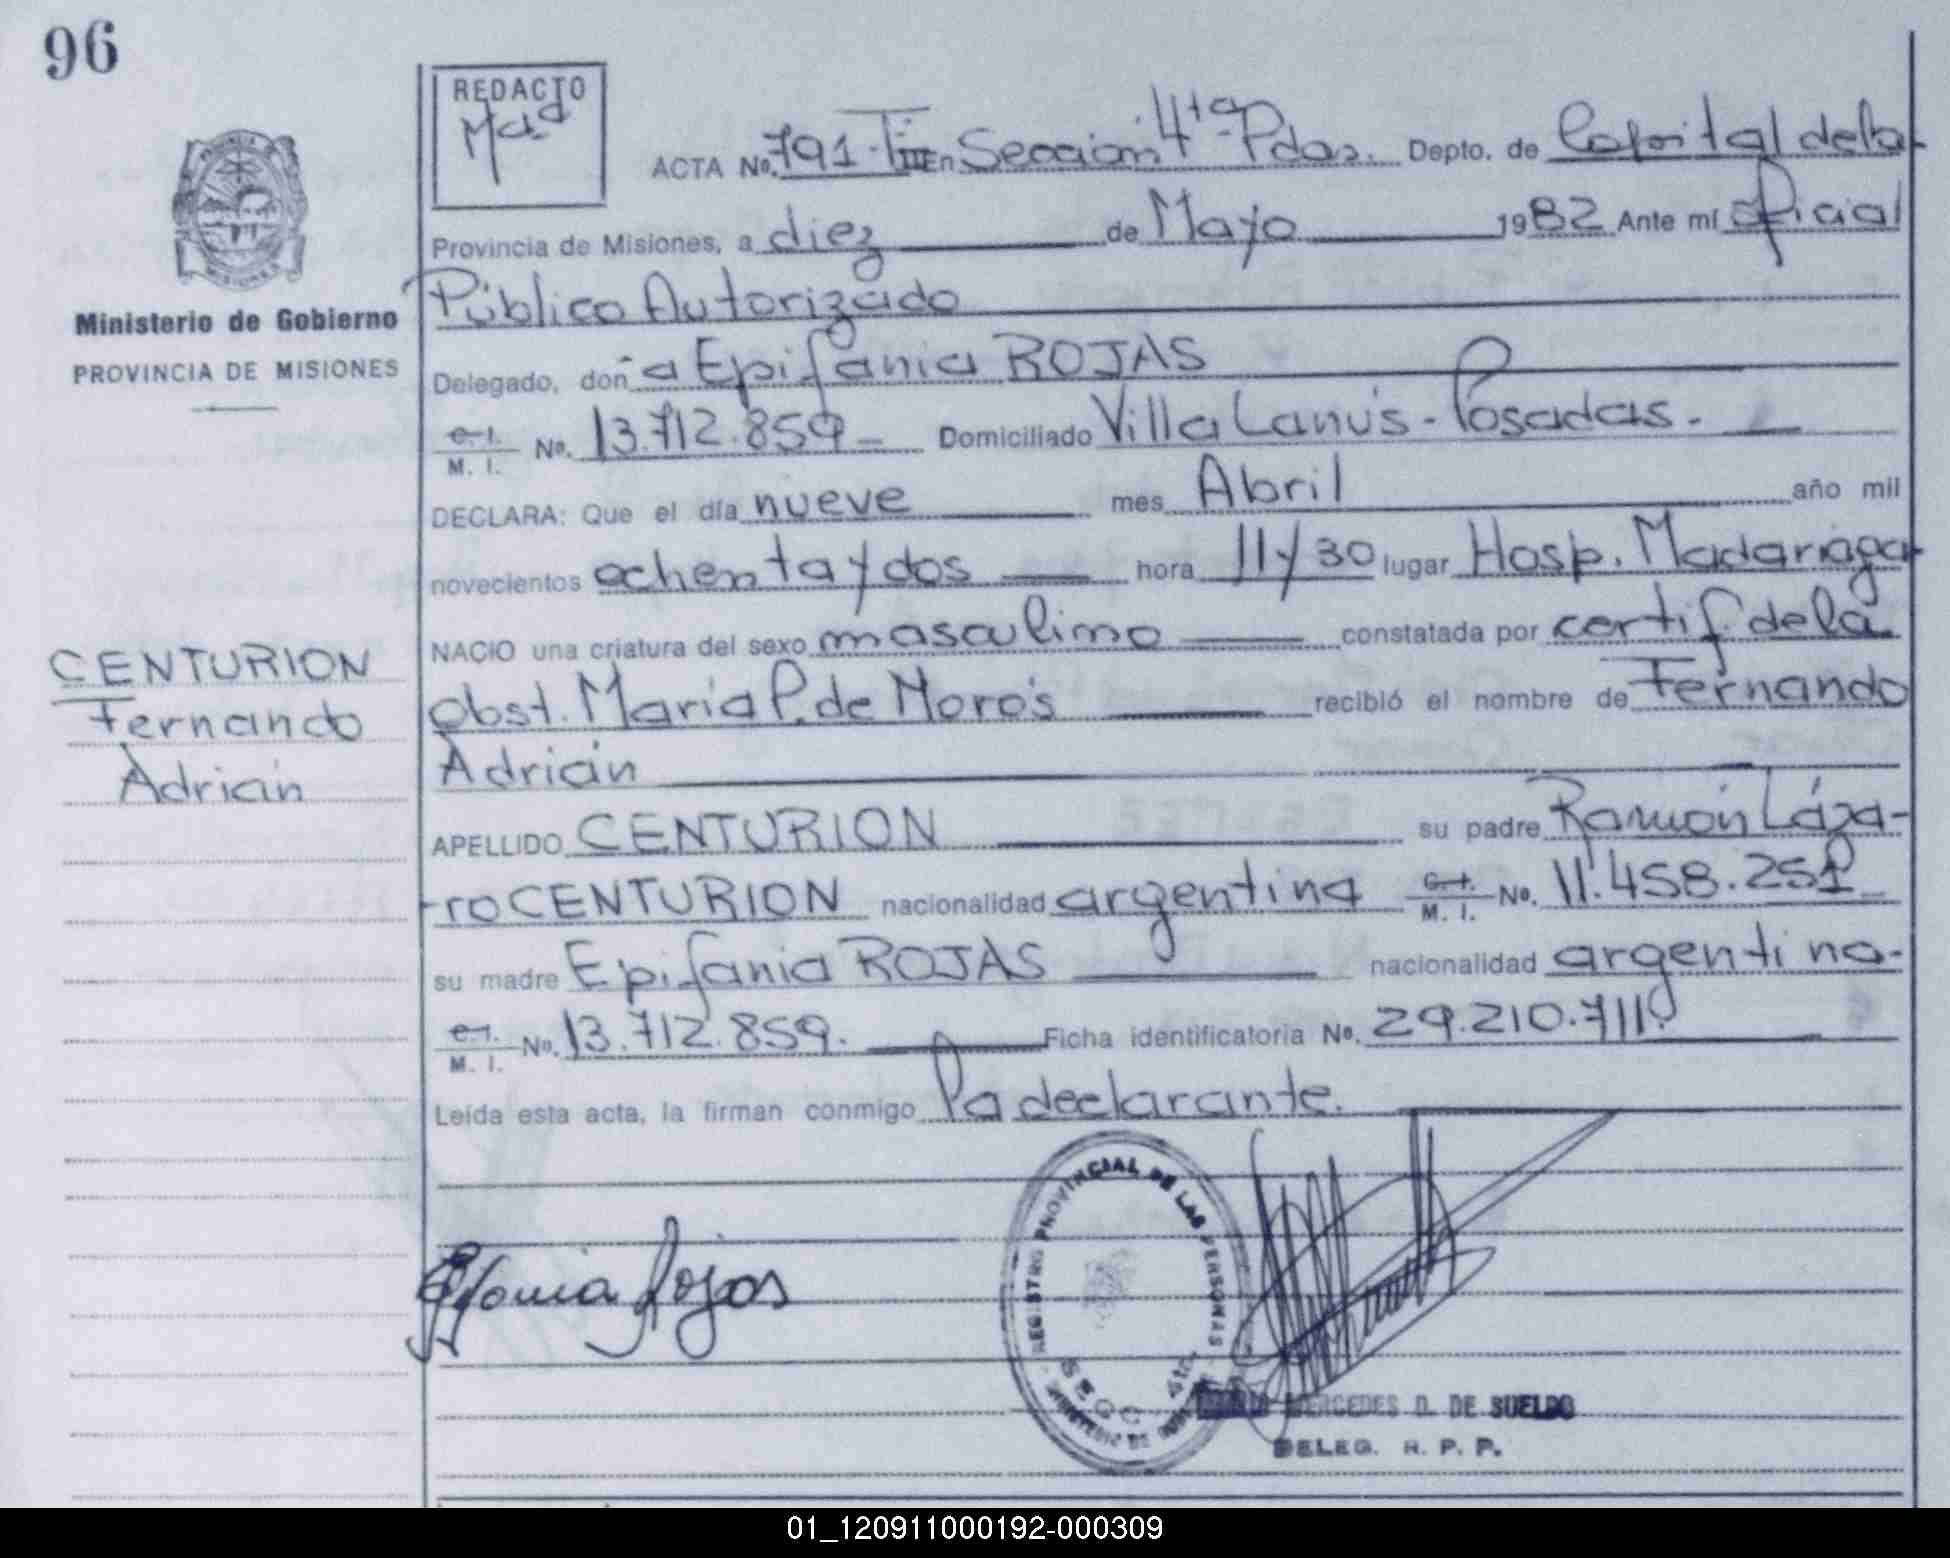 96
REDACTO
Mad
ACTA No. 791-TIII En Sección 4ta Pdas. Depto. de Capital de la
Provincia de Misiones, a diez de Mayo 1982 Ante mí Oficial
Público Autorizado
Delegado, doña Epifania ROJAS
C. I. M. I. No. 13.712.859 Domiciliado Villa Lanús - Posadas.
DECLARA: Que el día nueve mes Abril año mil
novecientos ochenta y dos hora 11 y 30 lugar Hosp. Madariaga
NACIO una criatura del sexo masculino constatada por certif. de la
obst. María P. de Moros recibió el nombre de Fernando
Adrián
APELLIDO CENTURION su padre Ramón Láza-
-ro CENTURION nacionalidad argentina C. I. M. I. No. 11.458.251
su madre Epifania ROJAS nacionalidad argentina-
C. I. M. I. No. 13.712.859. Ficha identificatoria No. 29.210.711
Leída esta acta, la firman conmigo la declarante.
Ministerio de Gobierno
PROVINCIA DE MISIONES
CENTURION
Fernando
Adrián
Epifania Rojas
REGISTRO PROVINCIAL DE LAS PERSONAS
SECC 4ta.
MINISTERIO DE
MERCEDES D. DE SUELDO
DELEG. R. P. P.
01_120911000192-000309